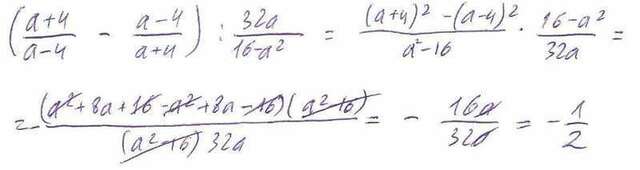 (a+4/a-4 - a-4/a+4) : 32a/16-a² = (a+4)² -(a-4)²/a²-16 · 16-a²/32a =
=-(a²+8a+16-a²+8a-16)(a²-16)/(a²-16) 32a = - 16a/32a = - 1/2